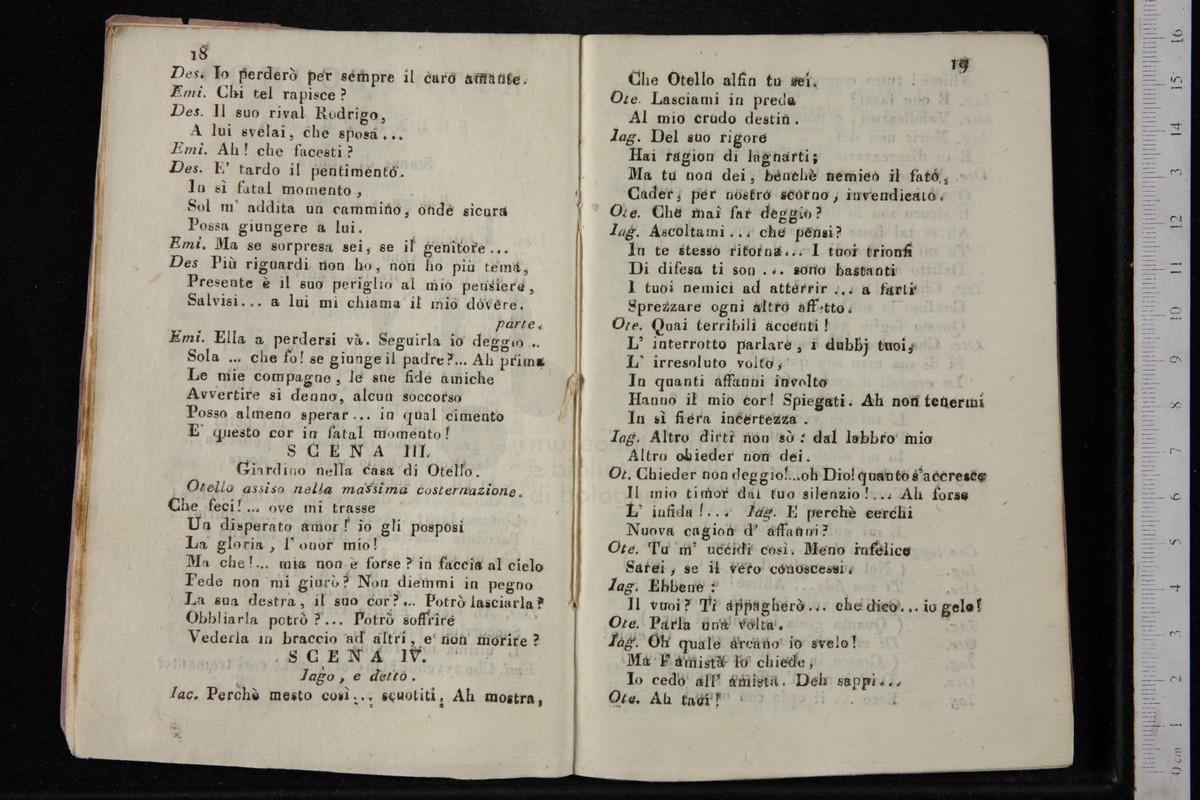 18
Des. Io perderò per sempre il caro amante.
Emi. Chi tel rapisce?
Des. Il suo rival Rodrigo,
A lui svelai, che sposa...
Emi. Ah! che facesti?
Des. E' tardo il pentimento.
In sì fatal momento,
Sol m' addita un cammino, onde sicura
Possa giungere a lui.
Emi. Ma se sorpresa sei, se il genitore...
Des Più riguardi non ho, non ho più tema,
Presente è il suo periglio al mio pensiere,
Salvisi... a lui mi chiama il mio dovere.
parte.
Emi. Ella a perdersi và. Seguirla io deggio ..
Sola ... che fo! se giunge il padre?... Ah prima
Le mie compagne, le sue fide amiche
Avvertire si denno, alcun soccorso
Posso almeno sperar... in qual cimento
E' questo cor in fatal momento!
SCENA III.
Giardino nella casa di Otello.
Otello assiso nella massima costernazione.
Che feci!... ove mi trasse
Un disperato amor! io gli posposi
La gloria, l' onor mio!
Ma che!... mia non è forse? in faccia al cielo
Fede non mi giurò? Non diemmi in pegno
La sua destra, il suo cor?... Potrò lasciarla?
Obbliarla potrò?... Potrò soffrire
Vederla in braccio ad altri, e non morire?
SCENA IV.
Iago, e detto.
Iac. Perchè mesto così... scuotiti. Ah mostra,
19
Che Otello alfin tu sei.
Ote. Lasciami in preda
Al mio crudo destin.
Iag. Del suo rigore
Hai ragion di lagnarti;
Ma tu non dei, benchè nemico il fato,
Cader, per nostro scorno, invendicato.
Ote. Che mai far deggio?
Iag. Ascoltami... che pensi?
In te stesso ritorna... I tuoi trionfi
Di difesa ti son ... sono bastanti
I tuoi nemici ad atterrir ... a farti
Sprezzare ogni altro affetto.
Ote. Quai terribili accenti!
L' interrotto parlare, i dubbj tuoi,
L' irresoluto volto,
In quanti affanni involto
Hanno il mio cor! Spiegati. Ah non tenermi
In sì fiera incertezza.
Iag. Altro dirti non sò: dal labbro mio
Altro chieder non dei.
Ot. Chieder non deggio!...oh Dio! quanto s'accresce
Il mio timor dal tuo silenzio!... Ah forse
L' infida!... Iag. E perchè cerchi
Nuova cagion d' affanni?
Ote. Tu m' uccidi così. Meno infelice
Sarei, se il vero conoscessi.
Iag. Ebbene:
Il vuoi? Ti appagherò... che dico... io gelo!
Ote. Parla una volta.
Iag. Oh quale arcano io svelo!
Ma l' amistà lo chiede,
Io cedo all' amistà. Deh sappi...
Ote. Ah taci!